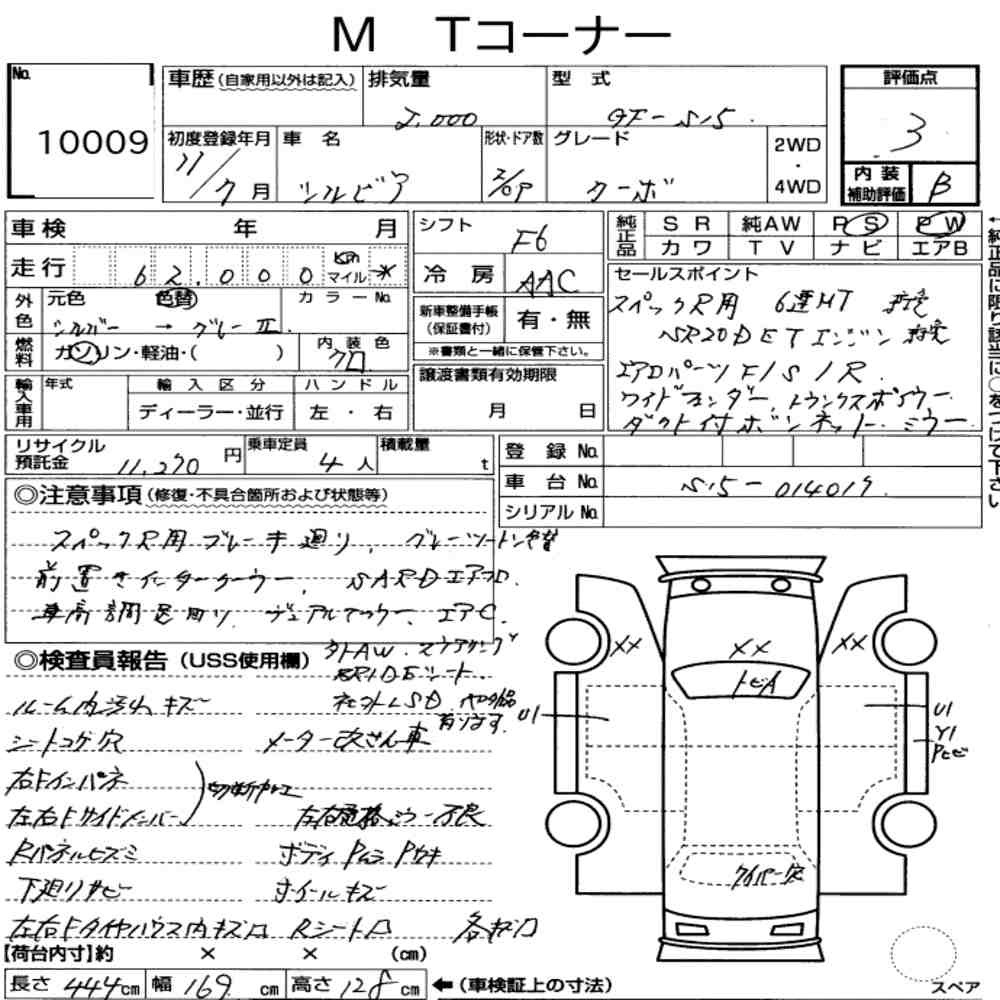 M Tコーナー
No. 10009
車歴(自家用以外は記入)
排気量 2,000
型式 GF-S15
評価点 3
初度登録年月 11/7月
車名 シルビア
形状・ドア数 2/OP
グレード ターボ
2WD・4WD
内装補助評価 B
車検 年 月
走行 62,000 Km マイル *
外色 元色 色替 カラーNo.
シルバー → グレーⅡ
燃料 ガソリン・軽油・( )
内装色 クロ
輸入車用 年式 輸入区分 ハンドル
ディーラー・並行 左・右
シフト F6
冷房 AAC
新車整備手帳(保証書付) 有・無
※書類と一緒に保管下さい。
譲渡書類有効期限
月 日
純正品 SR 純AW PS PW
カワ TV ナビ エアB
←純正品に限り該当に○をつけて下さい
セールスポイント
スペックR用 6速MT
SR20DETエンジン
エアロパーツF/S/R
ワイドフェンダー、トランクスポイラー
ダクト付ボンネット、ミラー
リサイクル預託金 11,270円
乗車定員 4人
積載量 t
登録No.
車台No. S15-014019
シリアルNo.
◎注意事項(修復・不具合箇所および状態等)
スペックR用ブレーキ廻り、グレーツートン
前置きインタークーラー、SARDエアロ
車高調足廻り デュアルマフラー、エアC
◎検査員報告(USS使用欄)
外AW、ステアリング
BRIDEシート
社外LSD
有ります。
ルーム内汚れ、キズ
シートコゲ穴
メーター改ざん車
右Fインパネ
左右Fサイドメンバー
切断加工
Rパネルヒズミ
ボディPムラ Pウキ
下廻りサビ
ホイールキズ
左右Fタイヤハウス内キズ凸
Rシート凸
XX
XX
XX
トビA
U1
U1
Y1
Pヒビ
ワイパー穴
スペア
【荷台内寸】約 × × (cm)
長さ 444cm 幅 169cm 高さ 128cm ←(車検証上の寸法)